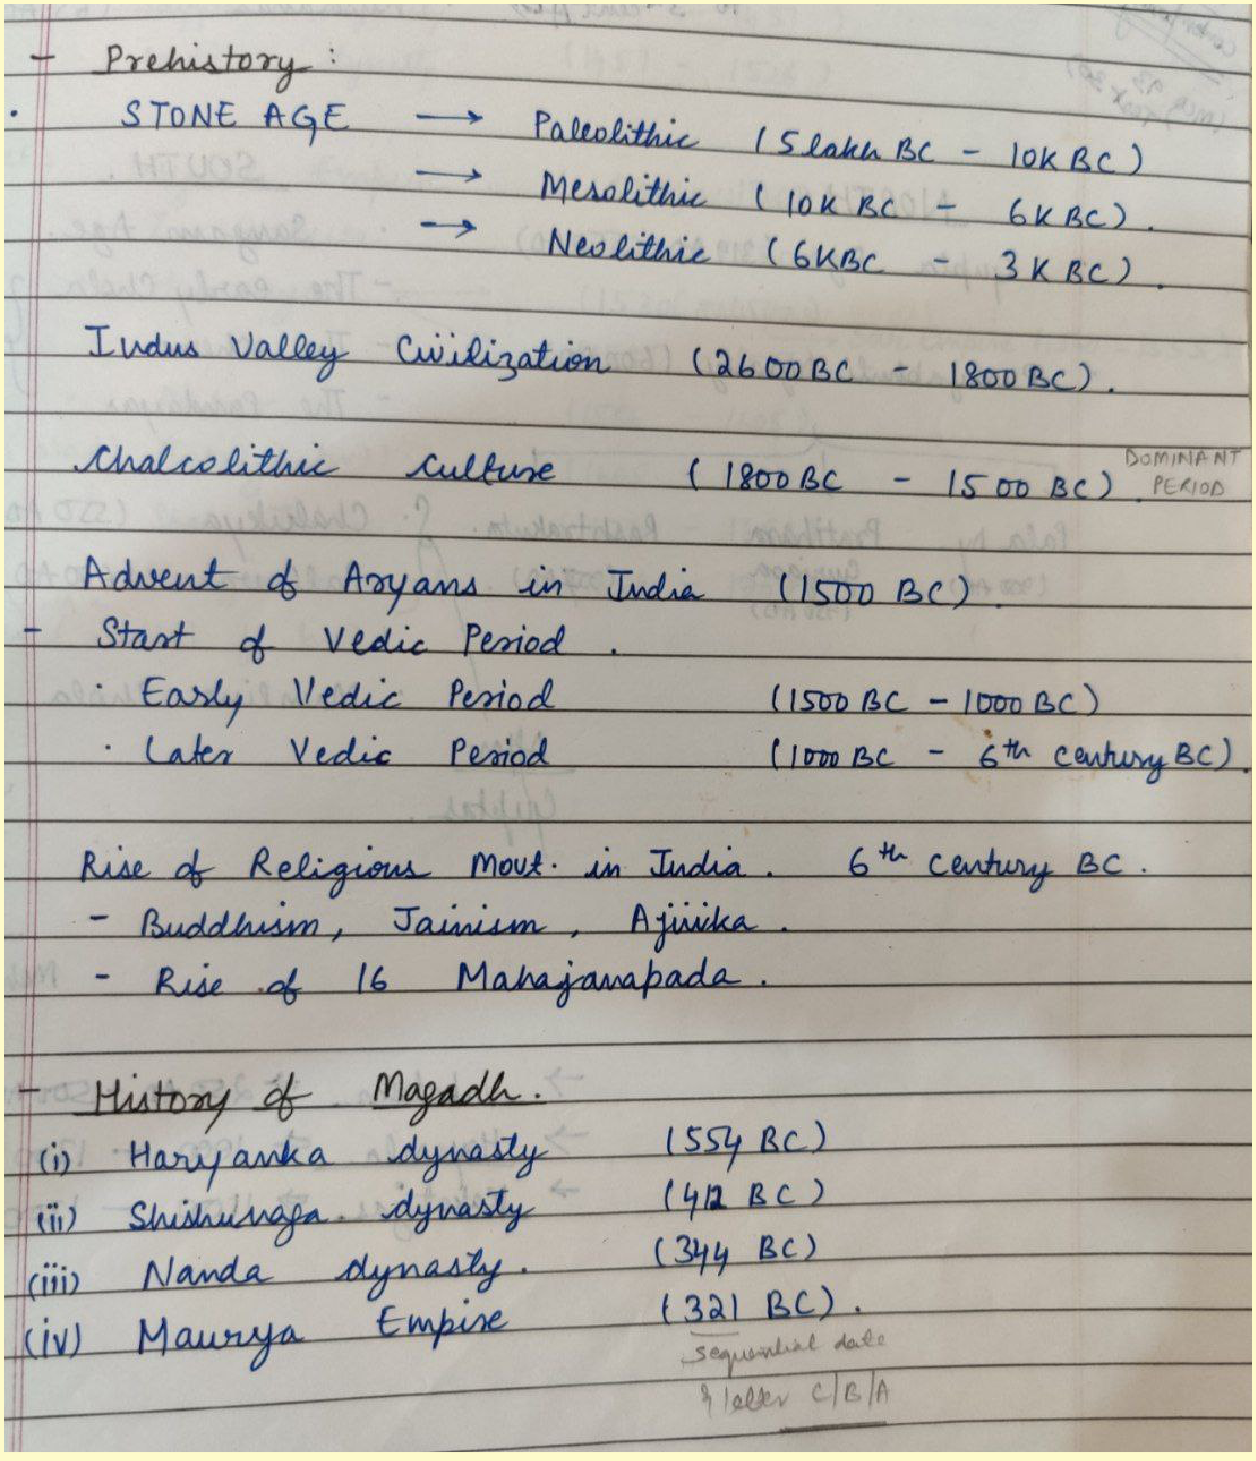 - Prehistory :
. STONE AGE → Paleolithic (5 lakh BC - 10K BC)
→ Mesolithic (10K BC - 6K BC).
→ Neolithic (6K BC - 3K BC).
Indus Valley Civilization (2600 BC - 1800 BC).
Chalcolithic Culture (1800 BC - 1500 BC). DOMINANT PERIOD
Advent of Aryans in India (1500 BC).
- Start of Vedic Period .
. Early Vedic Period (1500 BC - 1000 BC)
. Later Vedic Period (1000 BC - 6th century BC).
Rise of Religious Movt. in India . 6th century BC .
- Buddhism, Jainism, Ajivika .
- Rise of 16 Mahajanapada .
- History of Magadh .
(i) Haryanka dynasty (554 BC)
(ii) Shishunaga dynasty (412 BC)
(iii) Nanda dynasty . (344 BC)
(iv) Maurya Empire (321 BC) .
Sequential date
letter C/B/A